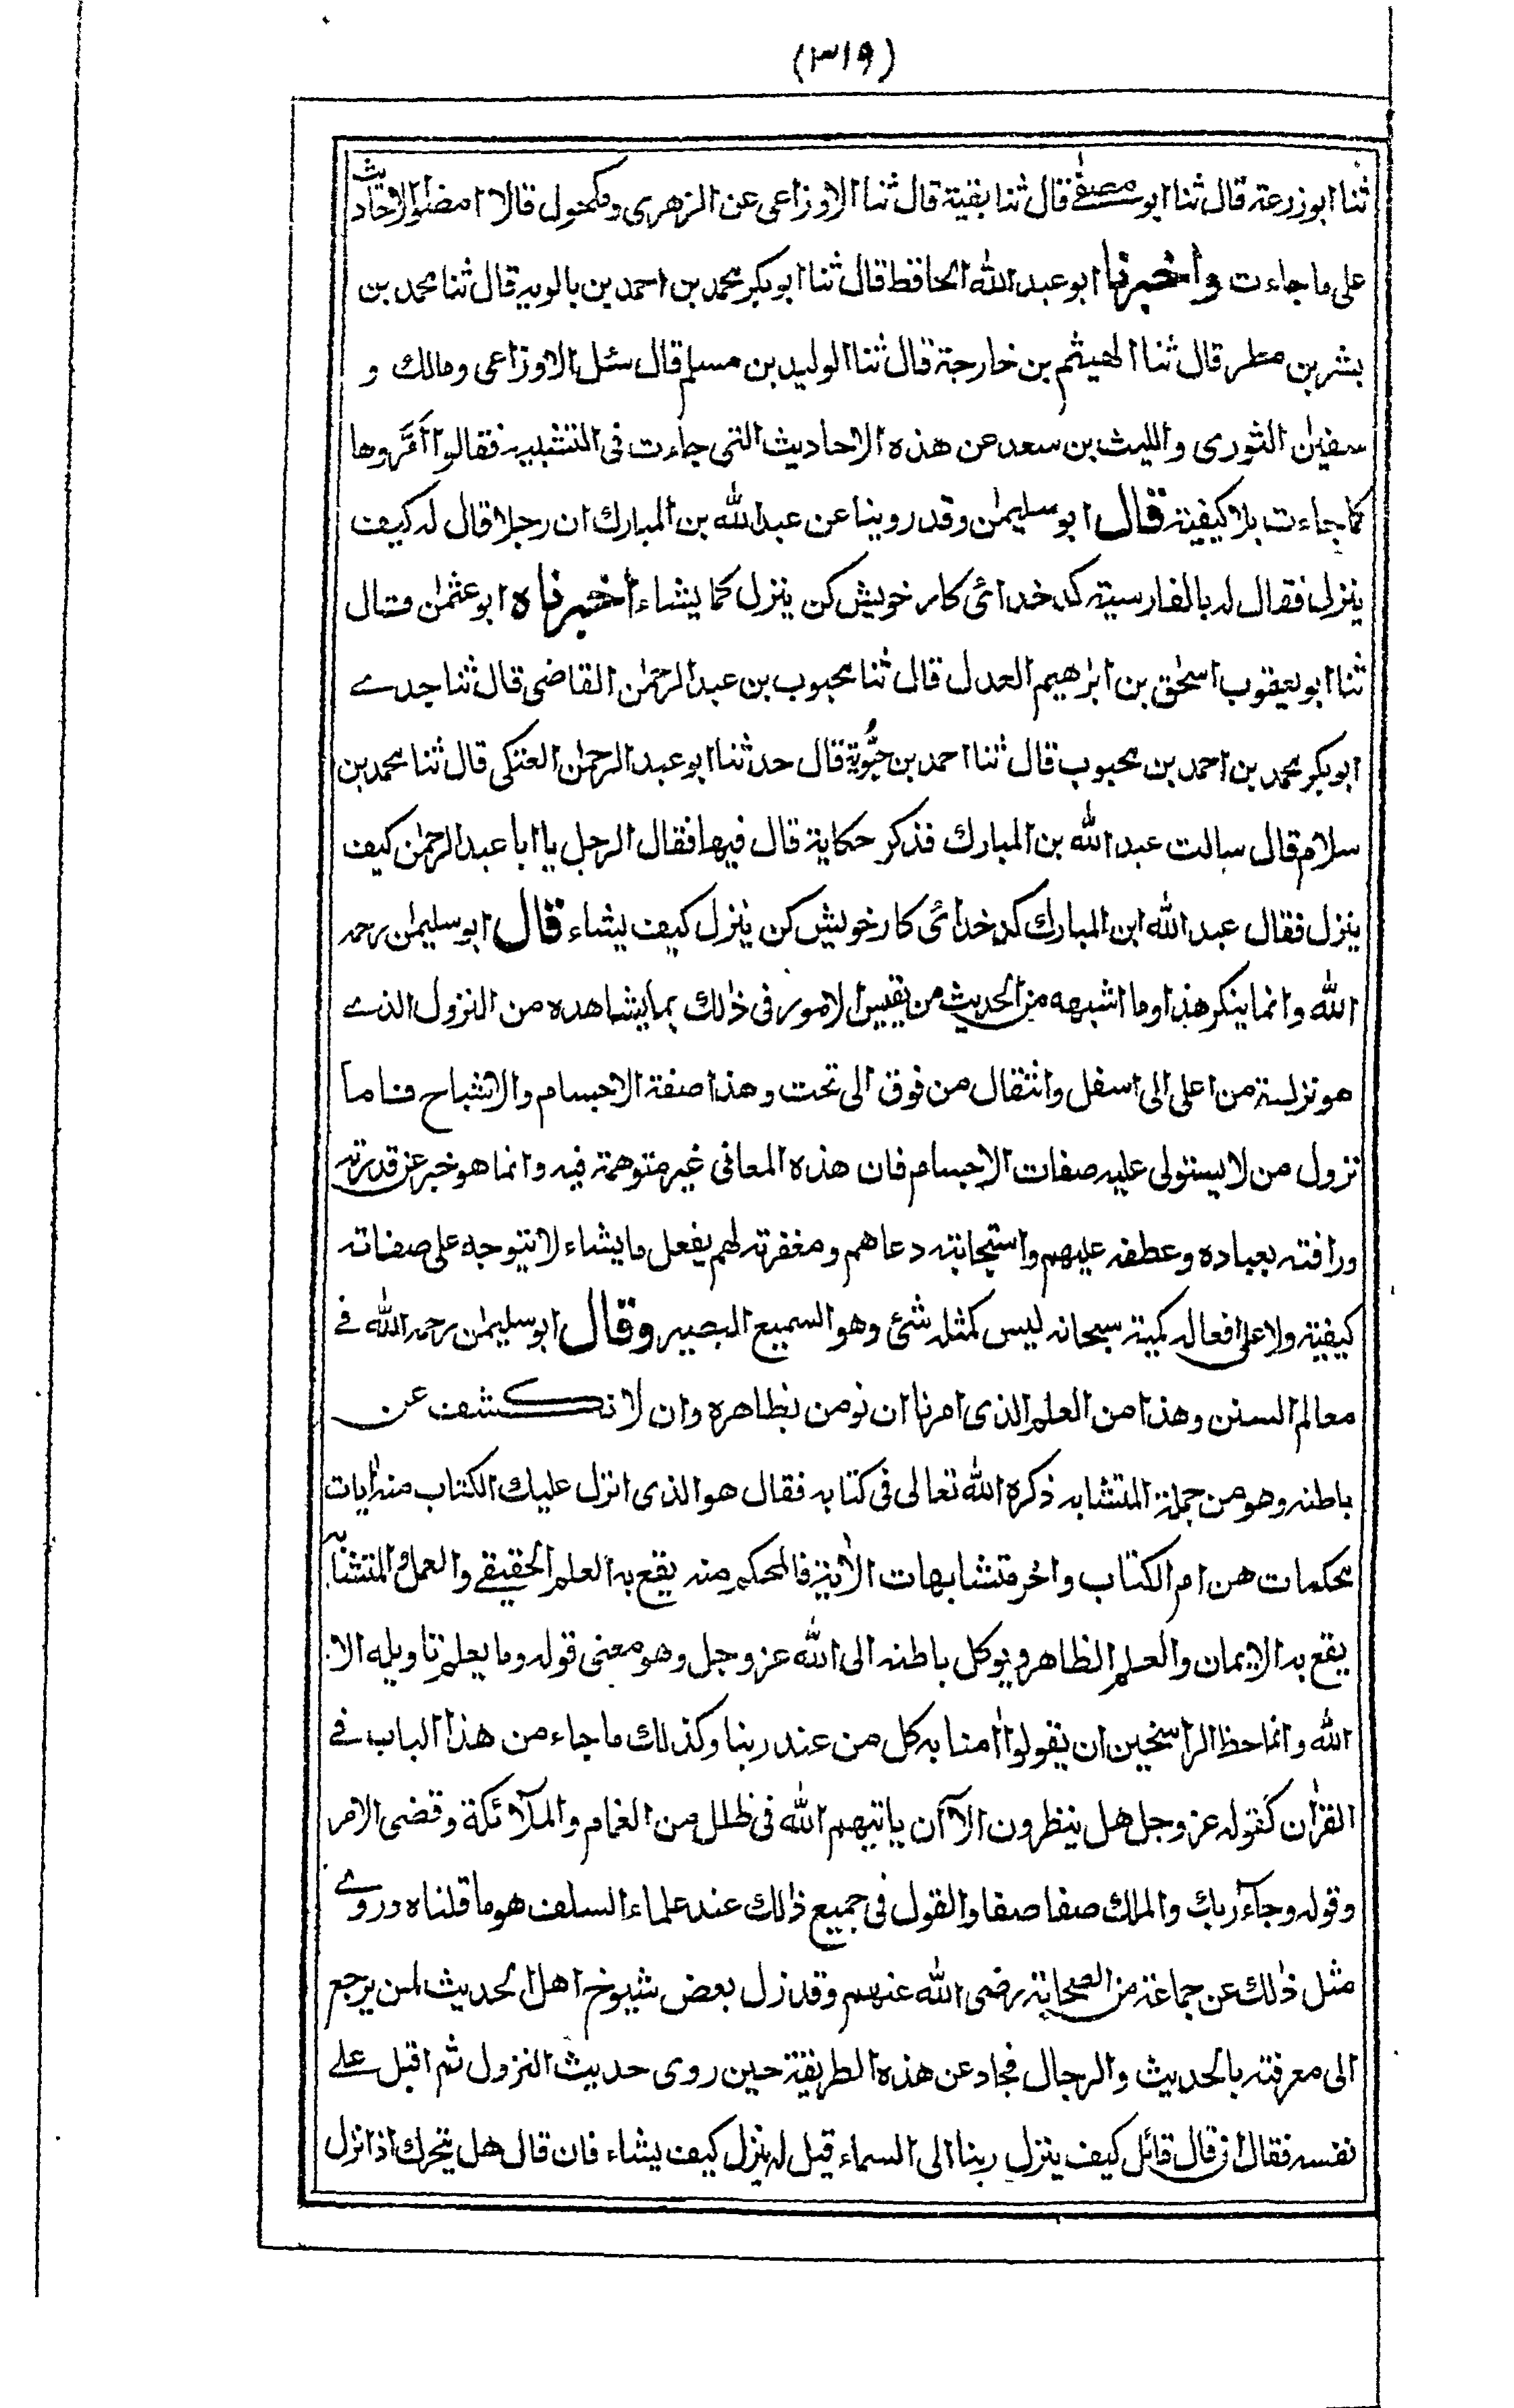 (٣١٩)
ثنا ابو زرعة قال ثنا ابو مصفے قال ثنا بقية قال ثنا الاوزاعی عن الزهری ومکحول قالا امضوا الاحادیث
علی ما جاءت واخبرنا ابو عبد الله الحافظ قال ثنا ابو بکر محمد بن احمد بن بالویه قال ثنا محمد بن
بشر بن مطر قال ثنا الهیثم بن خارجة قال ثنا الولید بن مسلم قال سئل الاوزاعی ومالك و
سفیٰن الثوری واللیث بن سعد عن هذه الاحادیث التی جاءت فی التشبیه فقالوا اَمَرُّوها
کما جاءت بلا کیفیة قال ابو سلیمٰن وقد روینا عن عبد الله بن المبارك ان رجلا قال له کیف
ینزل فقال له بالفارسیة کد خدائی کار خویش کن ینزل کما یشاء اخبرناه ابو عثمٰن قال
ثنا ابو یعقوب اسحٰق بن ابرٰهیم العدل قال ثنا محبوب بن عبد الرحمٰن القاضی قال ثنا جدے
ابو بکر محمد بن احمد بن محبوب قال ثنا احمد بن حَیُّویة قال حدثنا ابو عبد الرحمٰن العتکی قال ثنا محمد بن
سلام قال سالت عبد الله بن المبارك فذکر حکایة قال فیها فقال الرجل یا ابا عبد الرحمٰن کیف
ینزل فقال عبد الله ابن المبارك کد خدائی کار خویش کن ینزل کیف یشاء قال ابو سلیمٰن رحمه
الله وانما ینکر هذا وما اشبهه من الحدیث من یقیس الامور فی ذٰلك بما یشاهده من النزول الذے
هو نزلة من اعلی الی اسفل وانتقال من فوق الی تحت وهذا صفة الاجسام والاشباح فاما
نزول من لا یستولی علیه صفات الاجسام فان هذه المعانی غیر متوهمة فیه وانما هو خبر عن قدرته
ورافته بعباده وعطفه علیهم واستجابته دعاهم ومغفرته لهم یفعل ما یشاء لا یتوجه علی صفاته
کیفیة ولا علی افعاله کمیة سبحانه لیس کمثله شئ وهو السمیع البصیر وقال ابو سلیمٰن رحمه الله فے
معالم السنن وهذا من العلم الذی امرنا ان نومن بظاهره وان لا نکشف عن
باطنه وهو من جملة المتشابه ذکره الله تعالی فی کتابه فقال هو الذی انزل علیك الکتاب منه اٰیات
محکمات هن ام الکتاب واخر متشابهات الاٰیة فالمحکم منه یقع به العلم الحقیقے والعمل والمتشابه
یقع به الایمان والعلم الظاهر ویوکل باطنه الی الله عز وجل وهو معنی قوله وما یعلم تاویله الا
الله وانما حظ الراسخین ان یقولوا اٰمنا به کل من عند ربنا وکذلك ما جاء من هذا الباب فے
القراٰن کقوله عز وجل هل ینظرون الآ ان یاتیهم الله فی ظلل من الغمام والملآئکة وقضی الامر
وقوله وجآء ربك والملك صفا صفا والقول فی جمیع ذٰلك عند علماء السلف هو ما قلناه وروے
مثل ذٰلك عن جماعة من الصحابة رضی الله عنهم وقد زل بعض شیوخ اهل الحدیث لمن یرجع
الی معرفته بالحدیث والرجال فحاد عن هذه الطریقة حین روی حدیث النزول ثم اقبل علے
نفسه فقال ان قال قائل کیف ینزل ربنا الی السماء قیل له ینزل کیف یشاء فان قال هل یتحرك اذا نزل